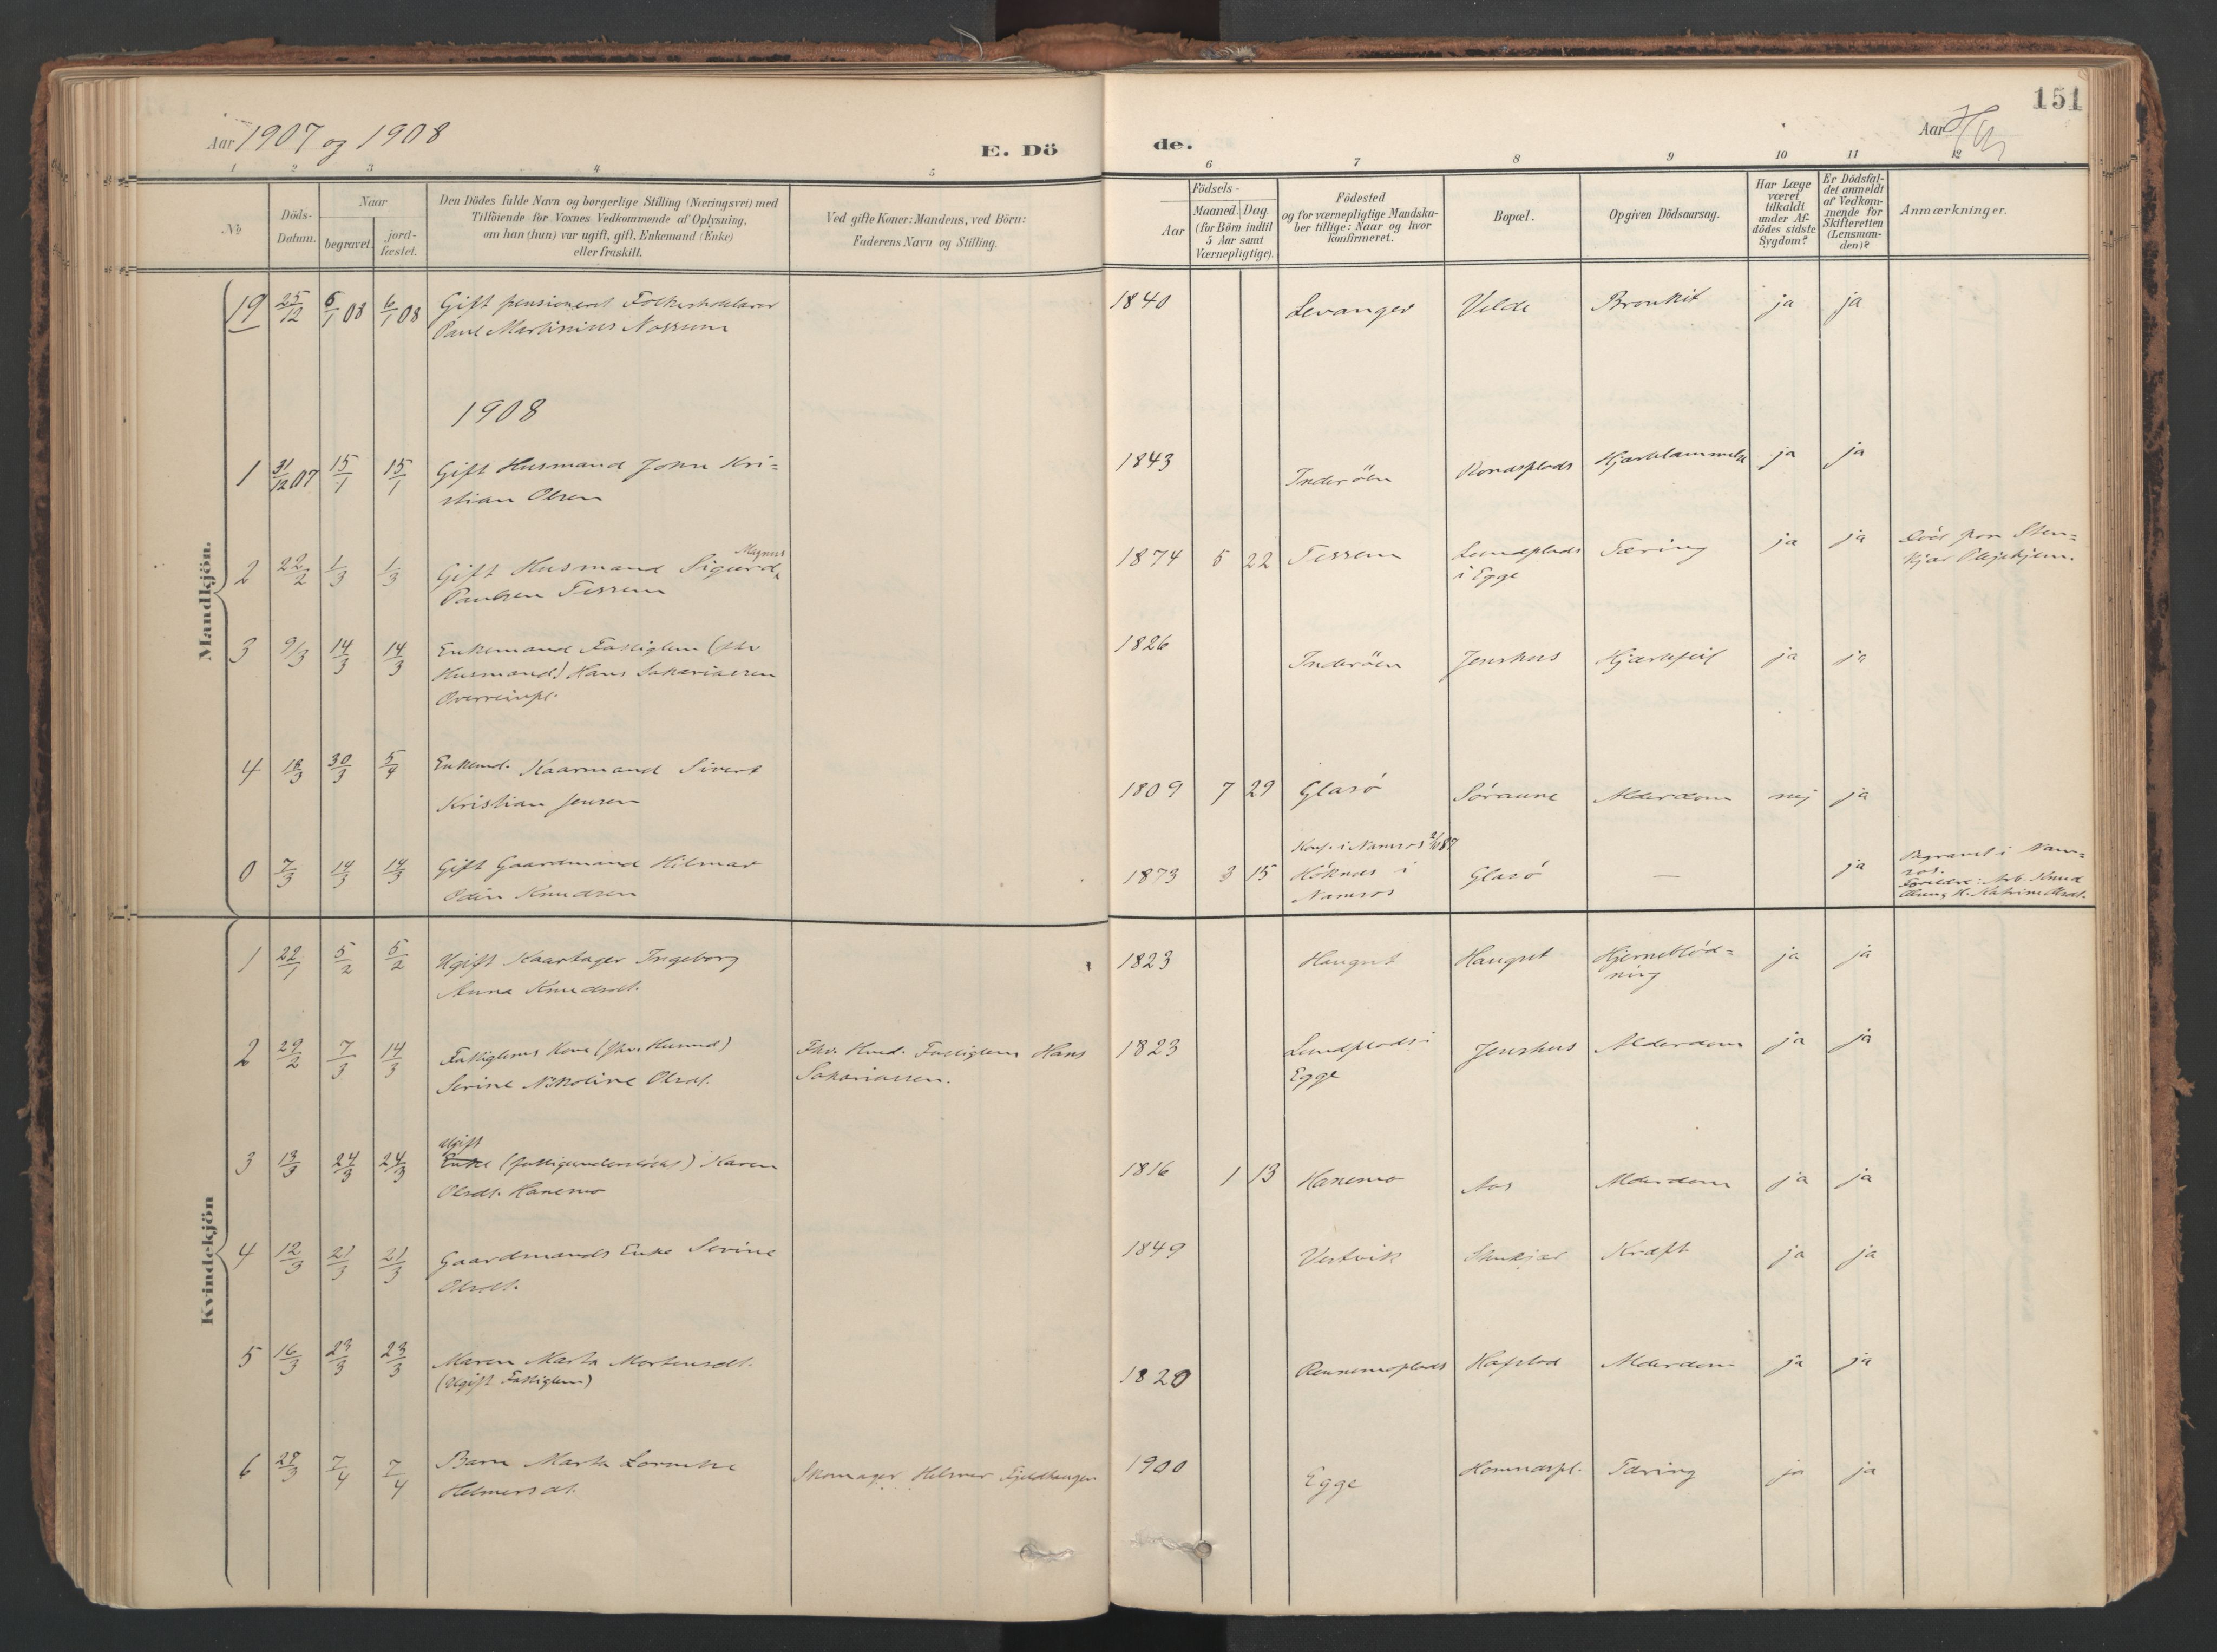 151
Aar 1907 og 1908
E. Dö
de.
Aar
1 2 3 4 5 6 7 8 9 10 11 12
№
Döds-
Datum.
Naar
begravet.
jord-
fæstet.
Den Dödes fulde Navn og borgerlige Stilling (Næringsvei) med
Tilföiende for Voxnes Vedkommende af Oplysning,
om han (hun) var ugift, gift, Enkemand (Enke)
eller fraskilt.
Ved gifte Koner: Mandens, ved Börn:
Faderens Navn og Stilling.
Födsels-
Aar
Maaned.
Dag.
(for Börn indtil
5 Aar samt
Værnepligtige).
Födested
og for værnepligtige Mandska-
ber tillige: Naar og hvor
konfirmeret.
Bopæl.
Opgiven Dödsaarsag.
Har Læge
været
tilkaldt
under Af-
dödes sidste
Sygdom?
Er Dödsfal-
det anmeldt
af Vedkom-
mende for
Skifteretten
(Lensman-
den)?
Anmærkninger.
Mandkjön.
19 25/12 6/1 08 6/1 08 Gift pensioneret 1840 Levanger Velde Bronkit ja ja
Paul Martinius Nossum
1908
1 31/12 07 15/1 15/1 Gift Husmand John Kri= 1843 Inderöen Hjærtelammelse ja ja
stian Olsen
2 22/2 1/3 1/3 Gift Husmand Sigurd Magnus 1874 5 22 Tessem Lundplads Tæring ja ja Död paa Sten=
Paulsen Tessem i Egge kjær Plejehjem.
3 9/3 14/3 14/3 Enkemand Fattiglem (fhv 1826 Inderöen Jesshus Hjærtefeil ja ja
Husmand) Hans Sakariassen
Overreinpl.
4 18/3 30/3 5/4 Enkemd. Kaarmand Sivert 1809 7 29 Glasö Söraune Alderdom nej ja
Kristian Jensen
0 7/3 14/3 14/3 Gift Gaardmand Hilmar 1873 3 15 Konf. i Namsos Glasö — ja Begravet i Nam=
Odin Knudsen Höknes i sos.
Namsos Forældre: Arb. Knud
Kvindekjön
1 22/1 5/2 5/2 Ugift Kaartager Ingeborg 1823 Haugset Haugset Hjerneblöd= ja ja
Anna Knudsdt. ning
2 29/2 7/3 14/3 Fattiglems Kone (fhv. Husmd) Fhv. Husd. Fattiglem Hans 1823 Lundplads i Jesshus Alderdom ja ja
Serine Nikoline Olsdt. Sakariassen. Egge
3 13/3 24/3 24/3 Ugift
Enke (fattigunderstöttet) Karen 1816 1 13 Hanemo Aas Alderdom ja ja
Olsdt. Hanemo
4 12/3 21/3 21/3 Gaardmands Enke Serine 1849 Vestvik Stenkjær Kræft ja ja
Olsdt.
5 16/3 23/3 23/3 Maren Marta Mortensdt. 1820 Rennemoplads Alderdom ja ja
(Ugift Fattiglem)
6 28/3 7/4 7/4 Barn Marta Lorentse Skomager Helmer Fjeldhaugen 1900 Egge Tæring ja ja
Helmersdt.